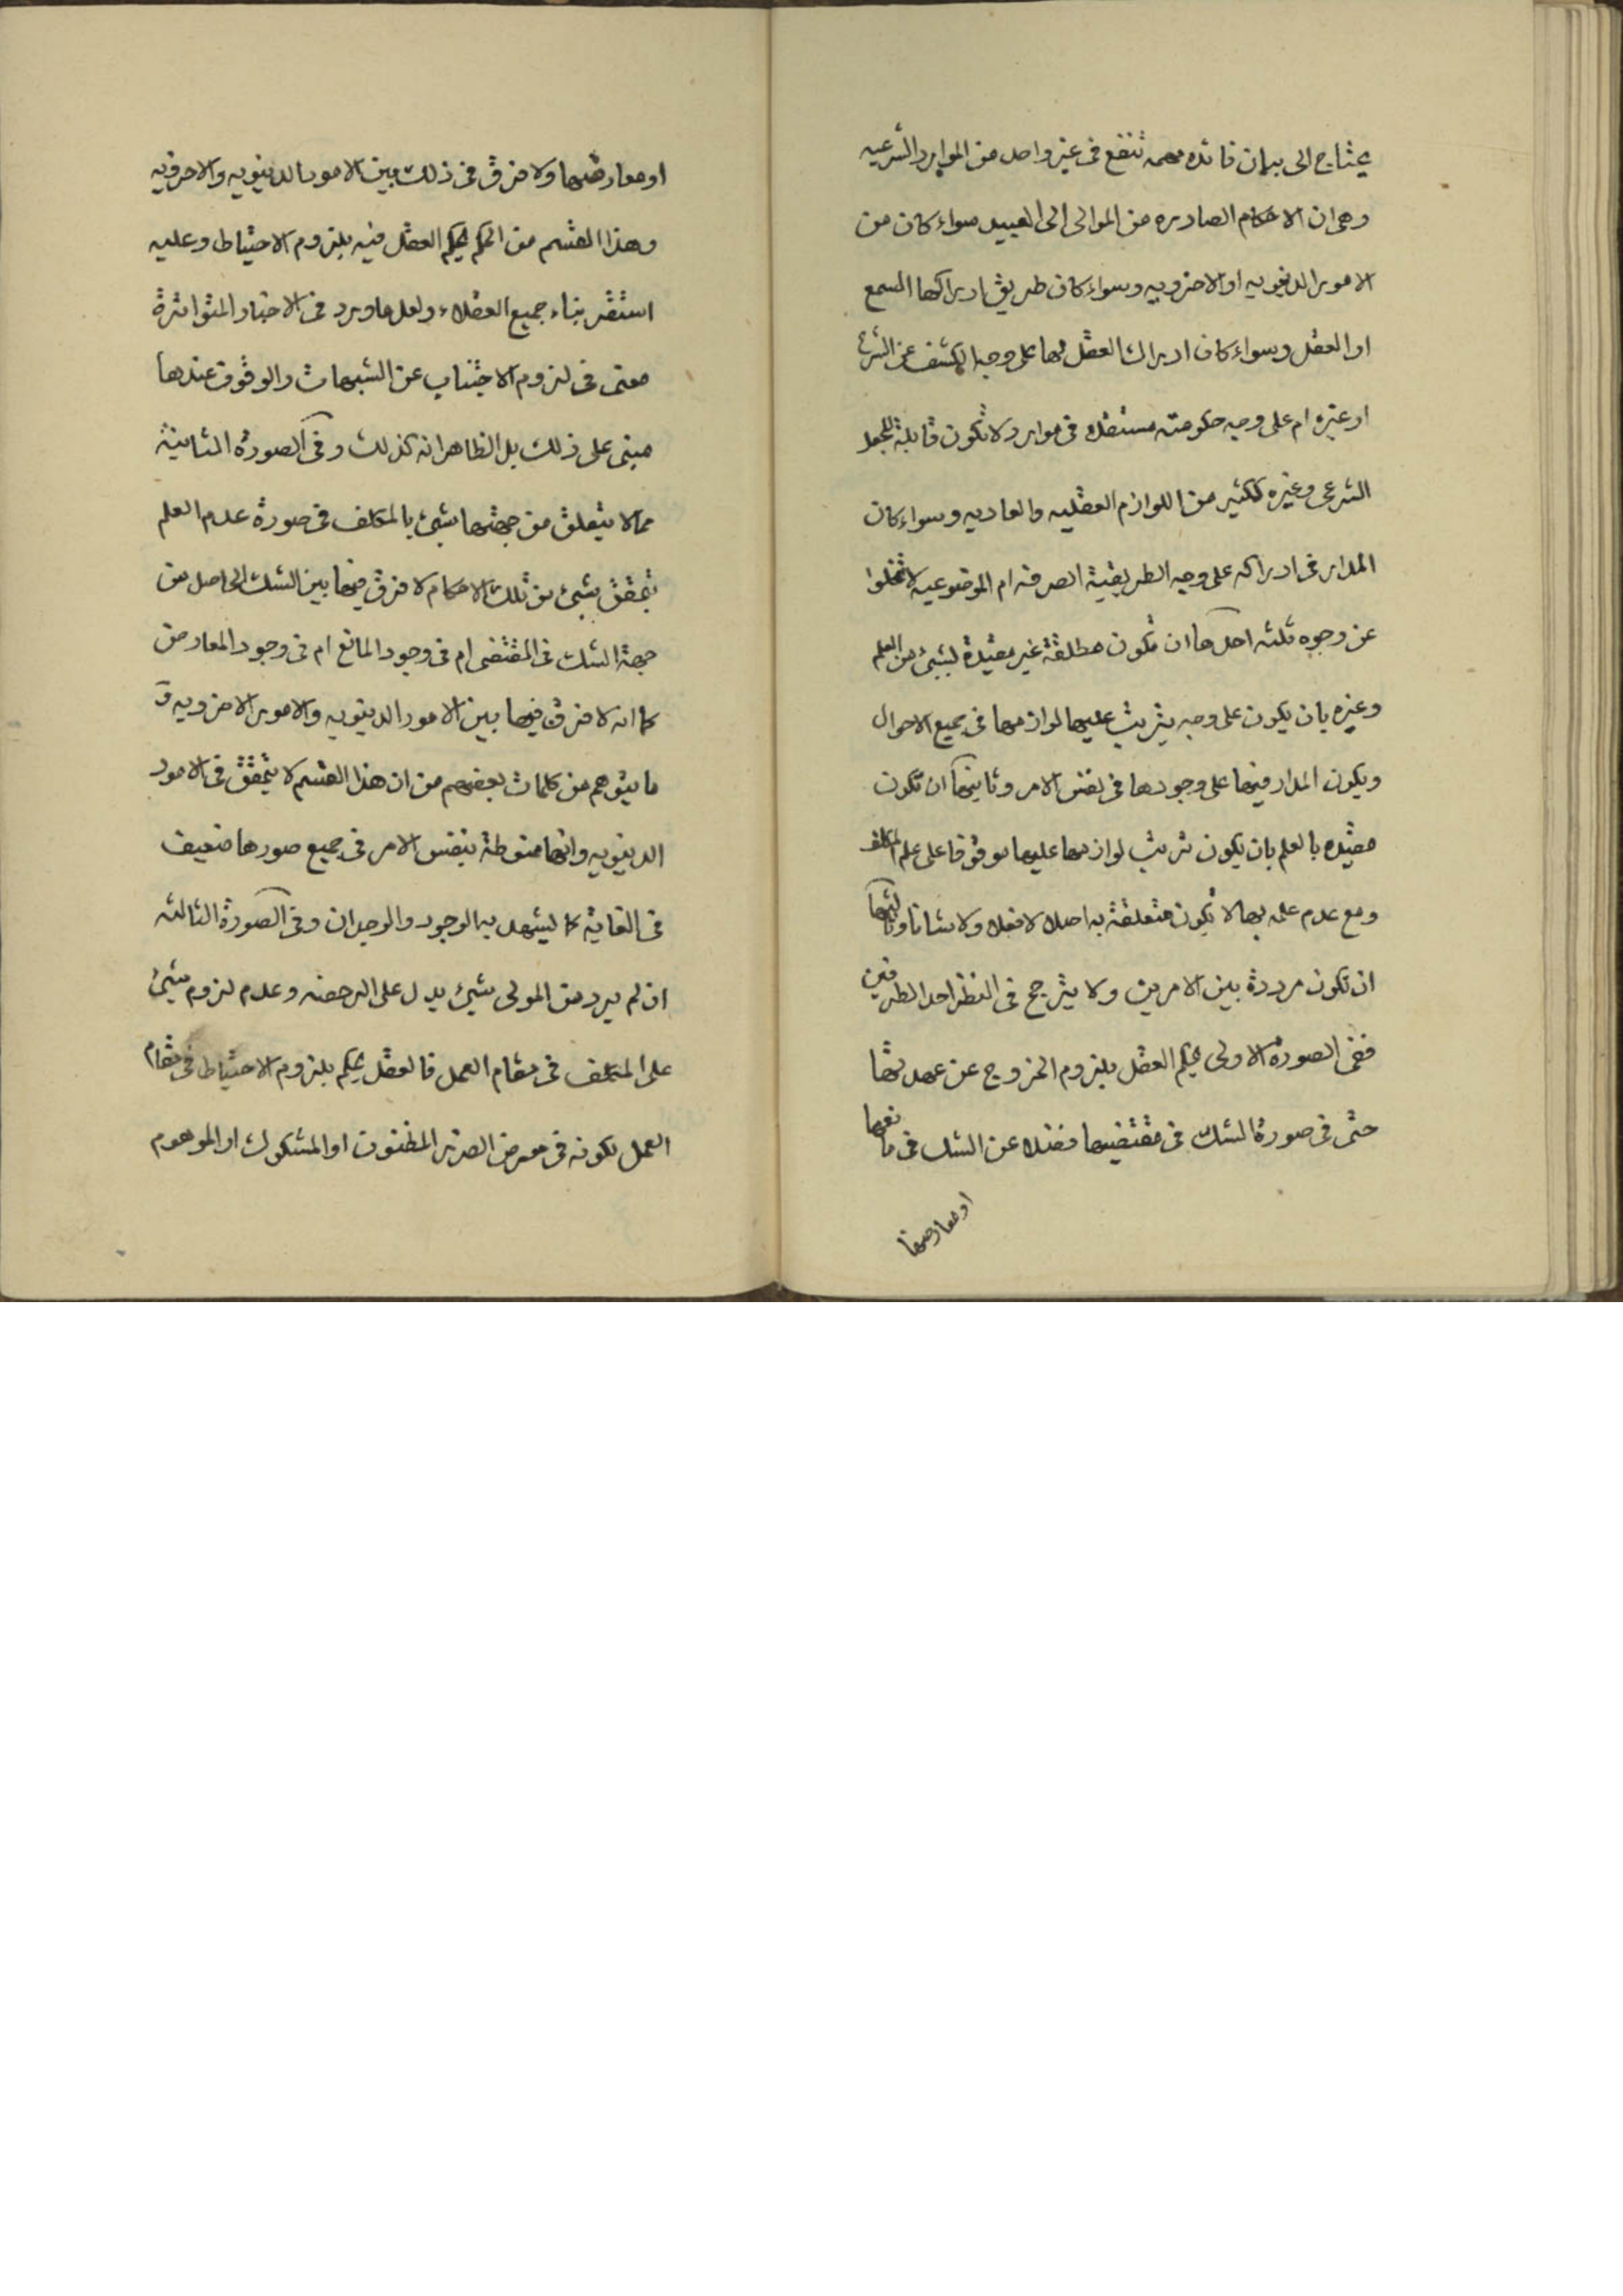 يحتاج الى بيان فائده مهمه تنفع فى غير واحد من الموارد الشرعيه
وهى ان الاحكام الصادره من الموالى الى العبيد سواء كان من
الامور الدنيويه او الاخرويه وسواء كان طريق ادراكها السمع
او العقل وسواء كان ادراك العقل لها على وجه الكشف عن الشرع
او غيره ام على وجه حكومته مستقلا فى موارد لا تكون قابلة للجعل
الشرعى وغيره ككثير من اللوازم العقليه والعاديه وسواء كان
المدار فى ادراكه على وجه الطريقية الصرفه ام الموضوعيه لا تخلوا
عن وجوه ثلثه احدها ان تكون مطلقة غير مقيدة بشيئ من العلم
وغيره بان يكون على وجه يترتب عليها لوازمها فى جميع الاحوال
ويكون المدار فيها على وجودها فى نفس الامر وثانيها ان تكون
مقيده بالعلم بان يكون ترتب لوازمها عليها موقوفا على علم المكلف
ومع عدم علمه بها لا تكون متعلقة به اصلا لا فعلا ولا شانا وثالثها
ان تكون مرددة بين الامرين ولا يترجح فى النظر احد الطرفين
ففى الصورة الاولى يحكم العقل بلزوم الخروج عن عهدتها
حتى فى صورة الشك فى مقتضيها فضلا عن الشك فى مانعها
او معارضها
او معارضها ولا فرق فى ذلك بين الامور الدنيويه والاخرويه
وهذا القسم من الحكم يحكم العقل فيه بلزوم الاحتياط وعليه
استقر بناء جميع العقلاء ولعل ما ورد فى الاخبار المتواترة
معنى فى لزوم الاجتناب عن الشبهات والوقوف عندها
مبنى على ذلك بل الظاهر انه كذلك وفى الصورة الثانية
مما لا يتعلق من جهتها بشيئ بالمكلف فى صورة عدم العلم
بتحقق شيئ من تلك الاحكام لا فرق فيها بين الشك الحاصل من
جهة الشك فى المقتضى ام فى وجود المانع ام فى وجود المعارض
كما انه لا فرق فيها بين الامور الدنيويه والامور الاخرويه و
ما يتوهم من كلمات بعضهم من ان هذا القسم لا يتحقق فى الامور
الدنيويه وانها منوطة بنفس الامر فى جميع صورها ضعيف
فى الغاية كما يشهد به الوجود والوجدان وفى الصورة الثالثه
ان لم يرد من المولى شيئ يدل على الرخصه وعدم لزوم شيئ
على المكلف فى مقام العمل فالعقل يحكم بلزوم الاحتياط فى مقام
العمل لكونه فى معرض الضرر المظنون او المشكوك او الموهوم